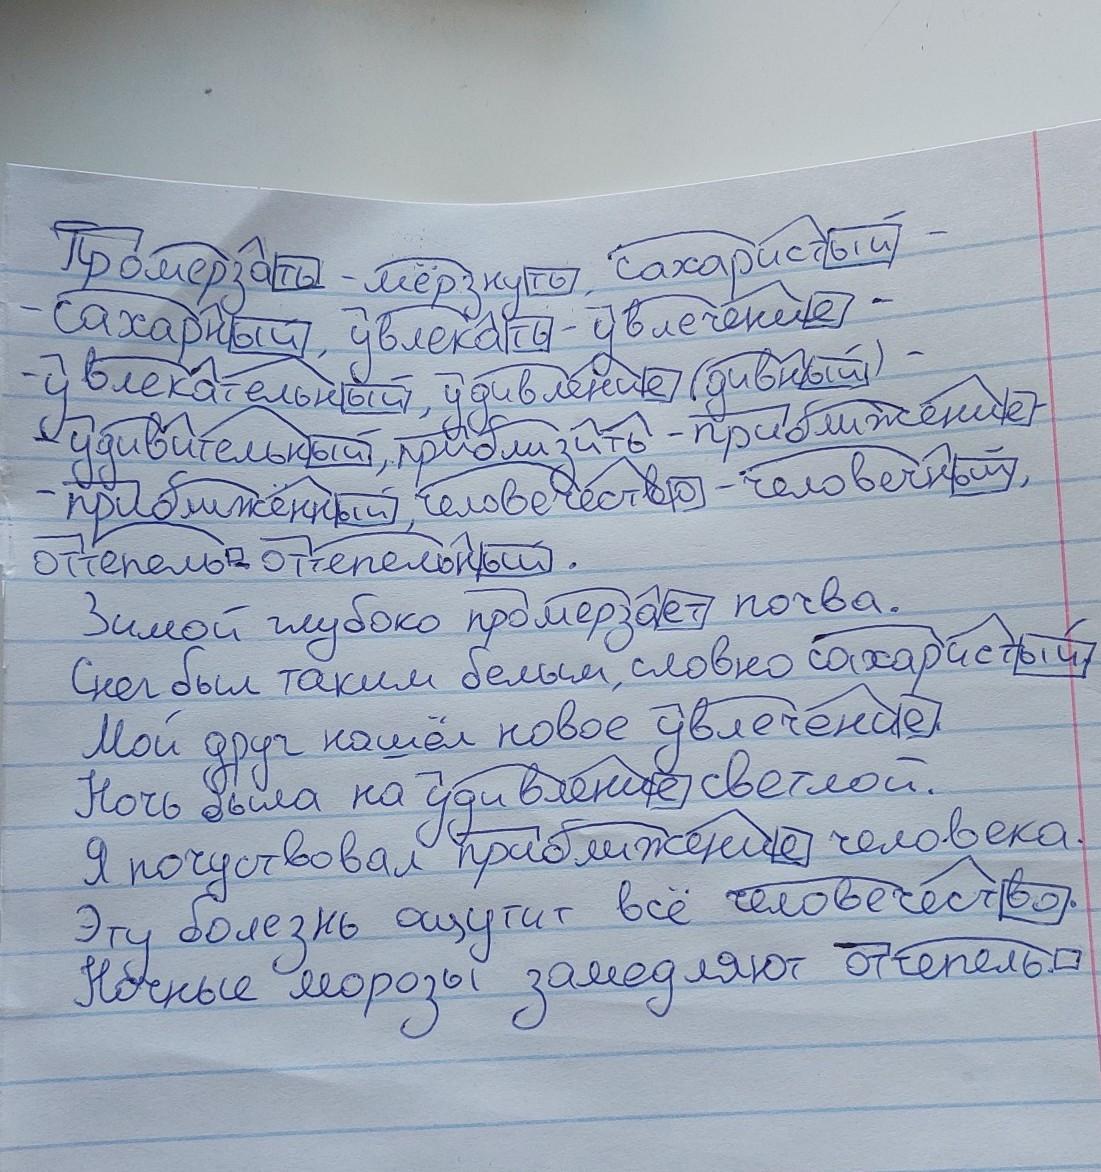 Промерзать - мёрзнуть, сахаристый -
- сахарный, увлекать - увлечение -
- увлекательный, удивление (дивный) -
- удивительный, приблизить - приближение -
- приближённый, человечество - человечный,
оттепель - оттепельный.
Зимой глубоко промерзает почва.
Снег был таким белым, словно сахаристый
Мой друг нашёл новое увлечение.
Ночь была на удивление светлой.
Я почуствовал приближение человека.
Эту болезнь ощутит всё человечество.
Ночные морозы замедляют оттепель.